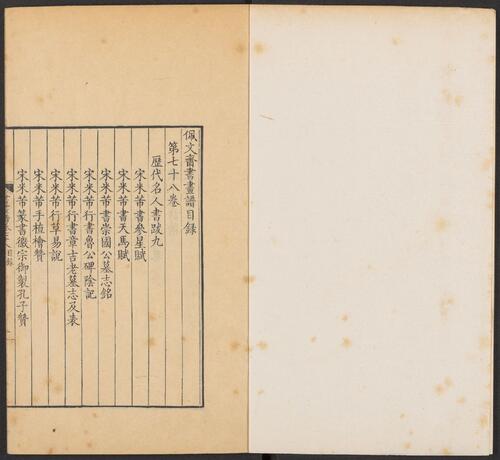 佩文齋書畫譜目録
第七十八卷
歷代名人書跋九
宋米芾書參星賦
宋米芾書天馬賦
宋米芾書崇國公墓志銘
宋米芾行書魯公碑陰記
宋米芾行書章吉老墓志及表
宋米芾行草易說
宋米芾手植檜贊
宋米芾篆書徽宗御製孔子贊